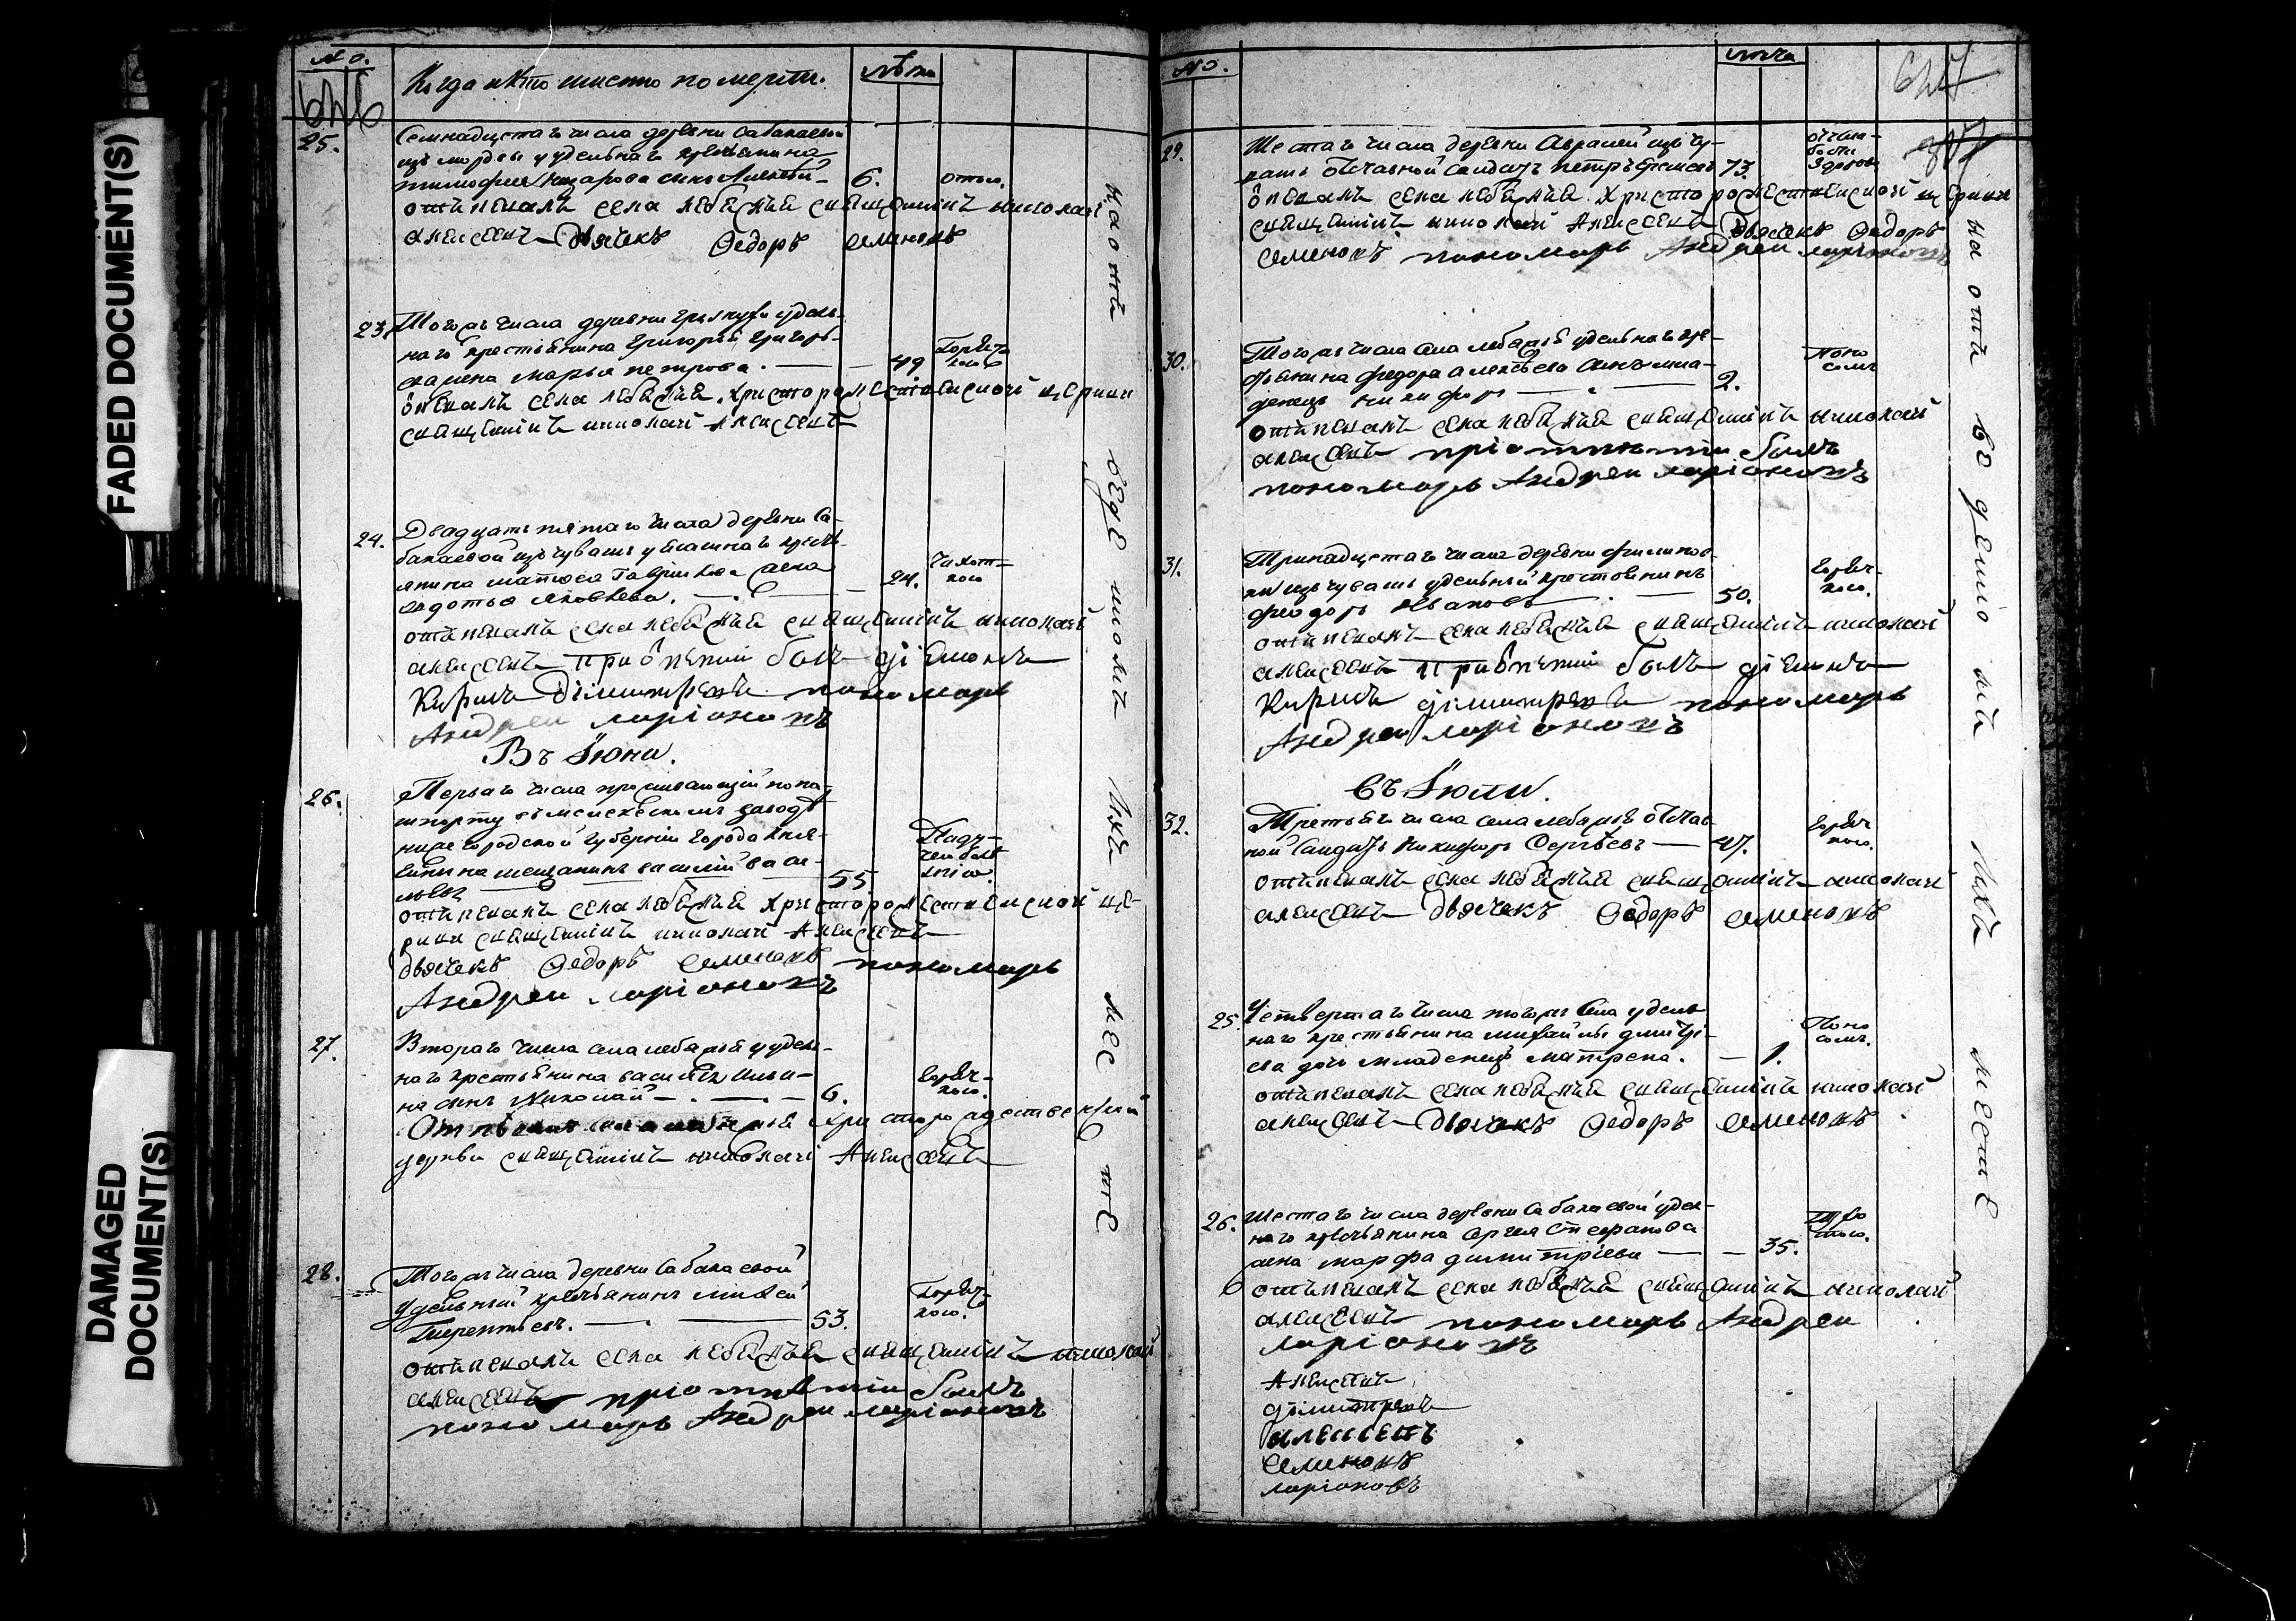 FADED DOCUMENT(S)
DAMAGED
DOCUMENT(S)
No.
Когда и кто имянно померли.
лѣта
646
25.
Семнадцетаго числа деревни Сабакаевой
изъ мордвы удельнаго крестьянина
тимофея Назарова сынъ Алексей
6.
отпѣвалъ села лебежьѣ священникъ николай
алексѣевъ Дьячекъ Ѳедоръ семеновъ
23.
Тогожъ числа деревни удель-
наго крестьянина Григорья Григорь-
жена марья петрова.
49
Горяч-
кою
отпѣвалъ села лебежьѣ христорожественской церкви
священникъ николай алексѣевъ
24.
Двадцать пятаго числа деревни Са-
бакаевой изъ чувашъ удельнаго кресть-
янина матвея Гаврилова жена
авдотья яковлева.
24.
Чахот-
кою
отпѣвалъ села лебежьѣ священникъ николай
алексѣевъ при отпѣтіи былъ діаконъ
Кирилъ Димитрѣевъ пономарь
Андреи ларіоновъ
Въ Іюни.
26.
Перваго числа проживающий по па-
шпорту въ мелекескомъ заводе
нижегородской губернии города Княг-
инина мещанинъ василий васи-
льевъ
55.
Паду-
чей болѣ
знію.
отпѣвалъ села лебежьѣ христорожественской це-
ркви священникъ николай Алексѣевъ
дьячекъ Ѳедоръ семеновъ пономарь
Андреи ларіоновъ
27.
Втораго числа села лебежьей удель-
наго крестьянина василья ильи-
на сынъ Николай
6.
горяч-
кою.
Отпѣвалъ села лебежьѣ христорождественской
церкви священникъ николай Алексѣевъ
28.
Тогожъ числа деревни Сабакаевой
удельный крестьянинъ матвей
Терентьевъ.
53.
Горяч-
кою.
отпѣвалъ села лебежьѣ священникъ николай
алексѣевъ при отпѣтіи былъ
пономарь Андреи ларіоновъ
No.
лѣта
647
29.
Шестаго числа деревни Авралей изъ чу-
вашъ отставной солдатъ петръ
73.
отпѣвалъ села лебежьѣ христорожественской церкви
священникъ николай Алексѣевъ Дьячекъ Ѳедоръ
семеновъ пономарь Андреи ларіоновъ
30.
Тогожъ числа села лебежьей удельнаго кре-
стьянина федора алексѣева сынъ мла-
денецъ никифоръ
2.
Поно
сомъ
отпѣвалъ села лебежьѣ священникъ николай
алексѣевъ при отпѣтіи былъ
пономарь Андреи ларіоновъ
31.
Тринадцетаго числа деревни филипов-
ки изъ чувашъ удельный крестьянинъ
феодоръ Ивановъ
50.
горяч-
кою.
отпѣвалъ села лебежьѣ священникъ николай
алексѣевъ при отпѣтіи былъ діаконъ
Кирилъ димитрѣевъ пономарь
Андреи ларіоновъ
Въ Іюли.
32.
Третьяго числа села лебежья отстав-
ной солдатъ Никифоръ Сергѣевъ
47.
горяч
кою.
отпѣвалъ села лебежьѣ священникъ николай
алексѣевъ дьячекъ Ѳедоръ семеновъ
25.
Четвертаго числа тогожъ села удель-
наго крестьянина михайлы дмитрі-
ева дочь младенецъ матрена.
1.
Поно
сомъ.
отпѣвалъ села лебежьѣ священникъ николай
алексѣевъ Дьячекъ Ѳедоръ семеновъ
26.
Шестаго числа деревни Сабакаевой удел-
наго крестьянина сергея Степанова
жена марфа димитріева
35.
отпѣвалъ села лебежьѣ священникъ николай
алексѣевъ пономарь Андреи
ларіоновъ
Алексѣевъ
димитрѣевъ
алексѣевъ
Семеновъ
ларіоновъ